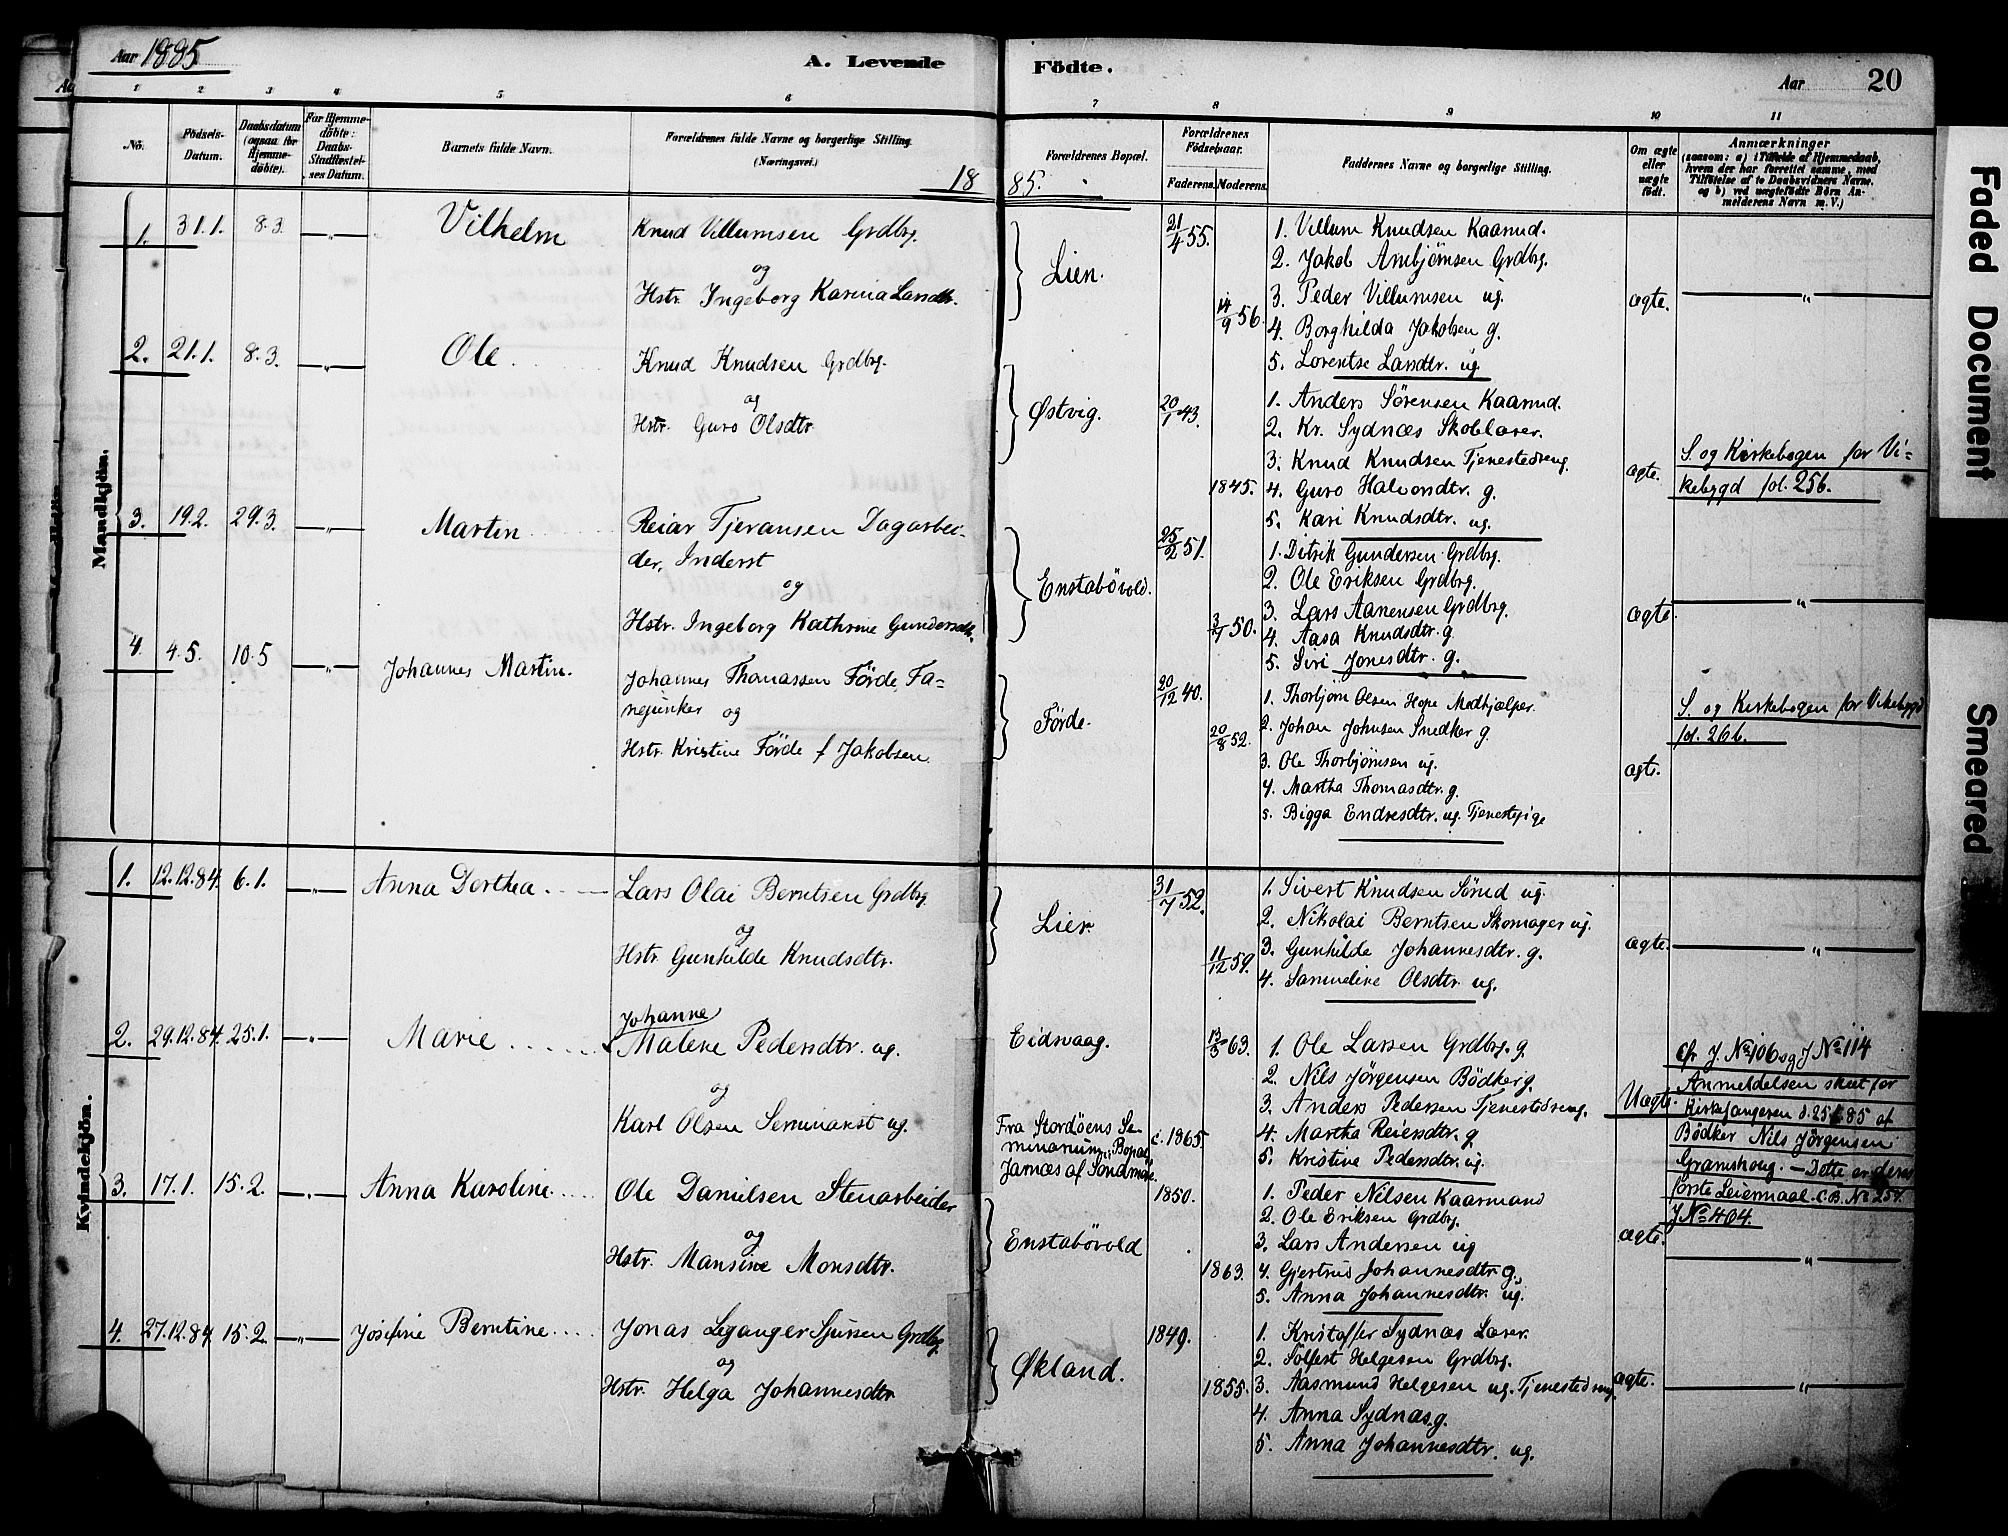 Aar 1885
A. Levende Födte.
Aar 20
1 2 3 4 5 6 7 8 9 10 11
No.
Födsels-
Datum.
Daabsdatum
(ogsaa for
Hjemme-
døbte).
For Hjemme-
døbte:
Daabs-
Stadfæstel-
ses Datum.
Barnets fulde Navn.
Forældrenes fulde Navne og borgerlige Stilling.
(Næringsvei.)
Forældrenes Bopæl.
Forældrenes
Fødselsaar.
Faderens. Moderens.
Faddernes Navne og borgerlige Stilling.
Om ægte
eller
uægte
født.
Anmærkninger
(saasom: a) i Tilfælde af Hjemmedaab,
hvem der har forrettet samme, med
Tilføielse af to Daabsvidners Navne,
og b) ved uægtefødte Børn An-
melderens Navn m. V.)
1885.
Mandkjön.
1. 31.1. 8.3. —„— Vilhelm
Knud Villumsen Grdbrg.
og
Hstr. Ingeborg Karina Larsdtr.
Lien.
21/4 55.
14/9 56.
1. Villum Knudsen Kaarud.
2. Jakob Ambjørnsen Grdbrg.
3. Peder Villumsen ug.
4. Borghilda Jakobsen g.
5. Lorentse Larsdtr. ug.
ægte.
—„—
2. 21.1. 8.3. —„— Ole
Knud Knudsen Grdbrg.
og
Hstr. Guro Olsdtr.
Østvig.
20/1 43.
1845.
1. Anders Sörensen Kaarud.
2. Kr. Sydnæs Skolelærer.
3. Knud Knudsen Tjenestedreng.
4. Guro Halvordtr. g.
5. Kari Knudsdtr. ug.
ægte.
S. og Kirkebogen for Vi-
kebygd fol. 256.
3. 19.2. 29.3. —„— Martin
Reiar Tjeransen Dagarbei-
der, Inderst
og
Hstr. Ingeborg Kathrine Gundersdtr.
Enstabövold.
25/2 51.
3/7 50.
1. Ditrik Gundersen Grdbrg.
2. Ole Eriksen Grdbrg.
3. Lars Aanensen Grdbrg.
4. Aasa Knudsdtr. g.
5. Siri Jonesdtr. g.
ægte.
—„—
4. 4.5. 10.5 —„— Johannes Martin.
Johannes Thomassen Förde, Fa-
nejunker og
Hstr. Kristine Förde f Jakobsen.
Förde.
20/12 40.
20/8 52.
1. Thorbjörn Olsen Hope Medhjælper.
2. Johan Johnsen Snedker g.
3. Ole Thorbjörnsen ug.
4. Martha Thomasdtr. g.
5. Bigga Endresdtr. ug. Tjenestepige
ægte.
S. og Kirkebogen for Vikebygd
fol. 266.
Kvindekjön.
1. 12.12.84. 6.1. —„— Anna Dorthea.
Lars Olai Berntsen Grdbrg
og
Hstr Gunhilde Knudsdtr.
Lien.
31/7 52.
11/12 59.
1. Sivert Knudsen Sørud ug.
2. Nikolai Berntsen Skomager ug.
3. Gunhilde Johannesdtr. g.
4. Samueline Olsdtr. ug.
ægte.
—„—
2. 29.12.84. 25.1. —„— Marie
Johanne
Malene Pedersdtr. ug.
og
Karl Olsen Seminarist ug.
Eidsvaag.
Fra Stordöens Se-
minarium, Bopæl
Jarnæs af Söndmøre.
13/3 63.
c. 1865.
1. Ole Larsen Grdbrg. g.
2. Nils Jörgensen Bödker g.
3. Anders Pedersen Tjenestedreng.
4. Martha Reiersdtr. g.
5. Kristine Pedersdtr. ug.
Uægte.
cfr J. No 106 og J No 114
Anmeldelsen skut for
Kirkesangeren d. 25/1 85 af
Bödker Nils Jörgensen
Gramshoug. — Dette er deres
første Leiermaal. C.B. No 257.
J No 404.
3. 17.1. 15.2. —„— Anna Karoline
Ole Danielsen Stenarbeider
og
Hstr. Mansine Monsdtr.
Enstabövold
1850.
1863.
1. Peder Nilsen Kaarmand
2. Ole Eriksen Grdbrg.
3. Lars Andersen ug
4. Gjertrud Johannesdtr g.
5. Anna Johannesdtr. ug.
ægte.
—„—
4. 27.12.84 15.2. —„— Josefine Berntine
Jonas Leganger Sjursen Grdbrg.
og
Hstr. Helga Johannesdtr
Økland.
1849.
1855.
1. Kristoffer Sydnæs Lærer.
2. Solfest Helgesen Grdbrg.
3. Aasmund Helgesen ug. Tjenestedreng.
4. Anna Sydnæs g.
5. Anna Johannesdtr. ug.
ægte.
—„—
Faded Document
Smeared